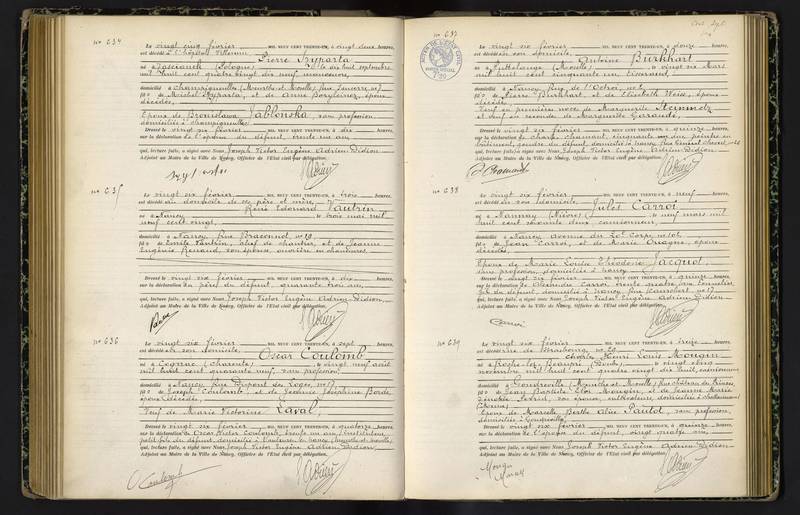 No 634
Le vingt cinq février MIL NEUF CENT TRENTE-UN, à vingt deux heures,
est décédé à l'hôpital Villemin Pierre Szyparta
né à (Pologne) le dix huit septembre
mil huit cent quatre vingt dix neuf, manoeuvre,
domicilié à Champigneulles (Meurthe et Moselle)
fils de Michel Szyparta, et de Anne époux
décédés,
Epoux de Bronislawa Jablonska, sans profession
domiciliée à Champigneulles
Dressé le vingt six février à dix heures,
sur la déclaration de l'épouse du défunt, trente un ans,
qui, lecture faite, a signé avec Nous, Joseph Victor Eugène Adrien Didion,
Adjoint au Maire de la Ville de Nancy, Officier de l'Etat civil par délégation.
No 635
Le vingt six février MIL NEUF CENT TRENTE-UN, à trois heures,
est décédé au domicile de ses père et mère,
René Edouard Vautrin
né à Nancy le trois mai mil
neuf cent onze,
domicilié à Nancy, Rue Braconnot, no 19
fils de Emile Vautrin, chef de chantier, et de Jeanne
Eugénie Renaud, son épouse, ouvrière en chaussures
Dressé le vingt six février à dix heures,
sur la déclaration du père du défunt, quarante trois ans,
qui, lecture faite, a signé avec Nous, Joseph Victor Eugène Adrien Didion,
Adjoint au Maire de la Ville de Nancy, Officier de l'Etat civil par délégation.
No 636
Le vingt six février MIL NEUF CENT TRENTE-UN, à sept heures,
est décédé en son domicile, Oscar Coulomb
né à Cognac (Charente) le vingt août
mil huit cent quarante neuf, sans profession
domicilié à Nancy, Rue Dupont des Loges, no 17
fils de Joseph Coulomb, et de Jeanne Joséphine Borde,
époux décédés,
Veuf de Marie Victorine Laval,
Dressé le vingt six février à quatorze heures,
sur la déclaration de Oscar Victor Coulomb, trente un ans, instituteur,
petit fils du défunt, domicilié à (Meurthe et Moselle)
qui, lecture faite, a signé avec Nous, Joseph Victor Eugène Adrien Didion,
Adjoint au Maire de la Ville de Nancy, Officier de l'Etat civil par délégation.
Coulomb
No 637
Le vingt six février MIL NEUF CENT TRENTE-UN, à douze heures,
est décédé en son domicile, Antoine Burkhart
né à Puttelange (Moselle) le vingt six Mars
mil huit cent cinquante un, Tisserand,
domicilié à Nancy, Rue de l'Octroi, no 1
fils de Pierre Burkhart, et de Elisabeth Weiss, époux
décédés,
Veuf en premières noces de Marguerite Steinmetz
et veuf en secondes de Marguerite Garaudé,
Dressé le vingt six février à quinze heures,
sur la déclaration de Charles cinquante un ans, peintre en
bâtiment, gendre du défunt, domicilié à Nancy, Rue
qui, lecture faite, a signé avec Nous, Joseph Victor Eugène Adrien Didion,
Adjoint au Maire de la Ville de Nancy, Officier de l'Etat civil par délégation.
No 638
Le vingt six février MIL NEUF CENT TRENTE-UN, à neuf heures,
est décédé en son domicile, Jules Carroi
né à Mannay (Nièvre) le neuf mars mil
huit cent soixante deux, camionneur,
domicilié à Nancy, avenue du
fils de Jean Carroi, et de Marie époux
décédés,
Epoux de Marie Louise Théodore Jacquot,
sans profession, domiciliée à Nancy
Dressé le vingt six février à quinze heures,
sur la déclaration de Alexandre Carroi, trente quatre ans, tonnelier,
fils du défunt, domicilié à Nancy, Rue
qui, lecture faite, a signé avec Nous, Joseph Victor Eugène Adrien Didion,
Adjoint au Maire de la Ville de Nancy, Officier de l'Etat civil par délégation.
Carroi
No 639
Le vingt six février MIL NEUF CENT TRENTE-UN, à treize heures,
est décédé rue de Strasbourg,
Charles Henri Louis Mougin
né à Roche-lez-Beaupré (Doubs) le vingt cinq
novembre mil huit cent quatre vingt dix huit,
domicilié à Gondreville (Meurthe et Moselle) Rue Château des Princes
fils de Jean Baptiste Eloi Mougin, et de Jeanne Marie
son épouse, domiciliés à
Epoux de Marcelle Berthe Alice Paulot, sans profession,
domiciliée à Gondreville,
Dressé le vingt six février à quinze heures,
sur la déclaration de l'épouse du défunt, vingt quatre ans,
qui, lecture faite, a signé avec Nous, Joseph Victor Eugène Adrien Didion,
Adjoint au Maire de la Ville de Nancy, Officier de l'Etat civil par délégation.